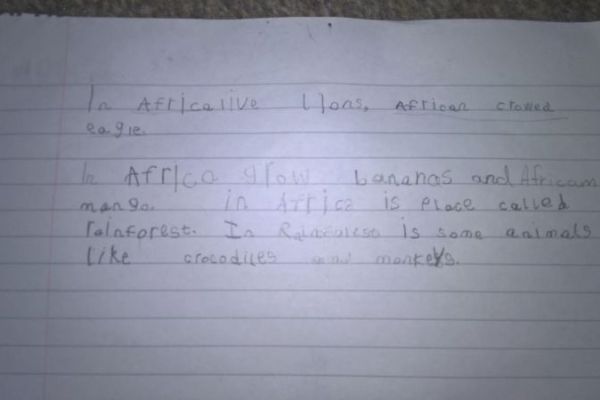 In Africa live lions, African crowed
eagle.
In Africa grow bananas and African
mango. in Africa is place called
rainforest. In Rainforest is some animals
like crocodiles and monkeys.